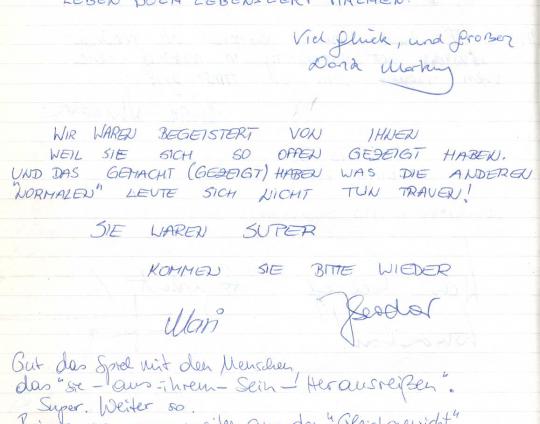 LEBEN DOCH LEBENSWERT MACHEN.
Viel Glück, und Großen
Dank
WIR WAREN BEGEISTERT VON IHNEN
WEIL SIE SICH SO OFFEN GEZEIGT HABEN.
UND DAS GEMACHT (GEZEIGT) HABEN WAS DIE ANDEREN
"NORMALEN" LEUTE SICH NICHT TUN TRAUEN!
SIE WAREN SUPER
KOMMEN SIE BITTE WIEDER
Mari
Theodor
Gut das Spiel mit den Menschen,
das "sie-aus-ihrem-Sein-Herausreißen".
Super. Weiter so.
aus der "Gleichgewicht"